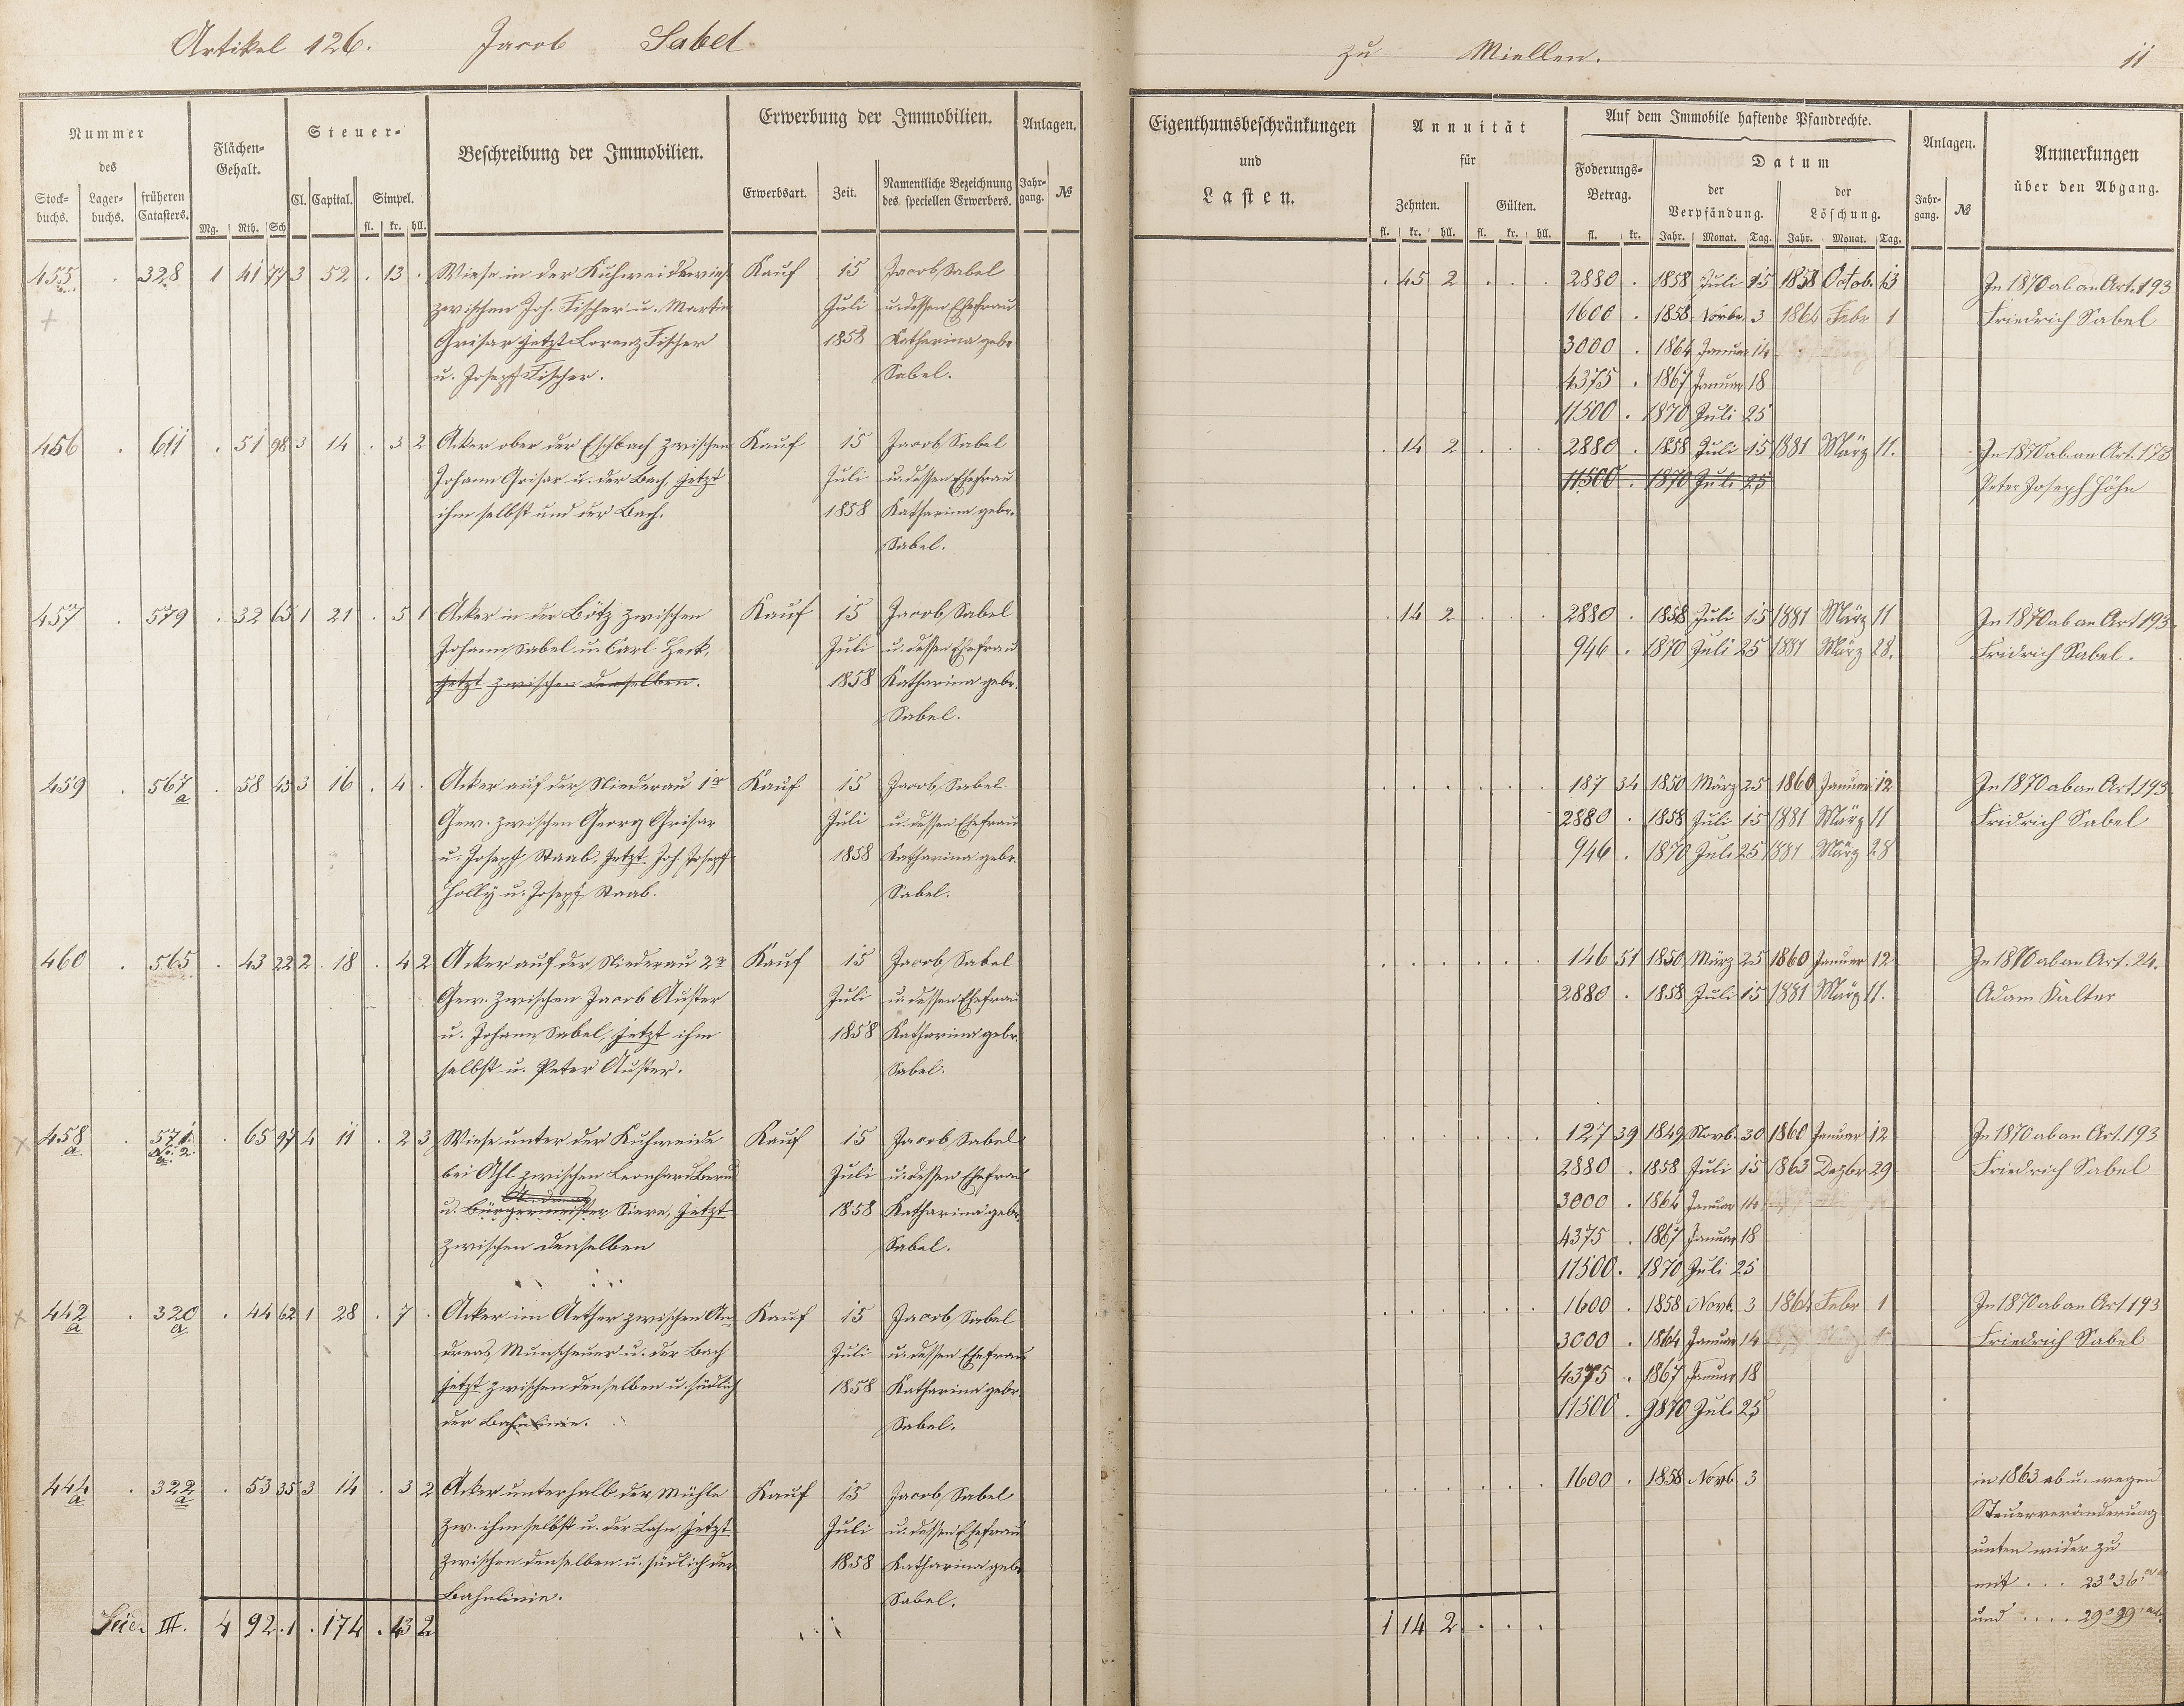 Artikel 126. Jacob Sabel
zu Miellen. 11
Nummer des
Stock-buchs. Lager-buchs. früheren Catasters.
Flächen-Gehalt.
Mg. Rth. Sch
Steuer-
Cl. Capital. Simpel.
fl. kr. hll.
Beschreibung der Immobilien.
Erwerbung der Immobilien.
Erwerbsart. Zeit. Namentliche Bezeichnung des speciellen Erwerbers.
Anlagen.
Jahr-gang. №
Eigenthumsbeschränkungen und Lasten.
Annuität für
Zehnten. Gülten.
fl. kr. hll. fl. kr. hll.
Auf dem Immobile haftende Pfandrechte.
Foderungs-Betrag.
fl. kr.
Datum
der Verpfändung. der Löschung.
Jahr. Monat. Tag. Jahr. Monat. Tag.
Anlagen.
Jahr-gang. №
Anmerkungen über den Abgang.
455 . 328 1 41 77 3 52 . 13 . Wiese in der Kuhweidswies Kauf 15 Jacob Sabel . 45 2 . . . 2880 . 1858 Juli 15 1858 Octob. 13 In 1870 ab an Art. 193
zwischen Joh. Fischer u. Martin Juli u. dessen Ehefrau 1600 . 1858 Novbr. 3 1864 Febr 1 Friedrich Sabel
Grisar jetzt Lorenz Fischer 1858 Katharina gebr 3000 . 1864 Januar 14
u. Joseph Fischer. Sabel. 4375 . 1867 Januar 18
11500 . 1870 Juli 25
456 . 611 . 51 98 3 14 . 3 2 Acker ober der Eschbach zwischen Kauf 15 Jacob Sabel . 14 2 . . . 2880 . 1858 Juli 15 1881 März 11. In 1870 ab an Art. 173
Johann Grisar u. der Bach, jetzt Juli u. dessen Ehefrau 11500 . 1870 Juli 25 Peter Joseph Höhn
ihm selbst und der Bach. 1858 Katharina gebr.
Sabel.
457 . 579 . 32 65 1 21 . 5 1 Acker in der Bötz zwischen Kauf 15 Jacob Sabel . 14 2 . . . 2880 . 1858 Juli 15 1881 März 11 In 1870 ab an Art 193.
Johann Sabel u. Carl Heck, Juli u. dessen Ehefrau 946 . 1870 Juli 25 1881 März 28. Fridrich Sabel.
jetzt zwischen denselben. 1858 Katharina gebr.
Sabel.
459 . 567 a . 58 45 3 16 . 4 . Acker auf der Niederau 1r Kauf 15 Jacob Sabel . . . . . . 187 34 1850 März 25 1860 Januar 12 In 1870 ab an Art. 193
Gew. zwischen Georg Grisar Juli u. dessen Ehefrau 2880 . 1858 Juli 15 1881 März 11 Fridrich Sabel
u. Joseph Staab, jetzt Joh. Joseph 1858 Katharina gebr. 946 . 1870 Juli 25 1881 März 28
Holly u. Joseph Staab. Sabel.
460 . 565 . 43 22 2 18 . 4 2 Acker auf der Niederau 2r Kauf 15 Jacob Sabel . . . . . . 146 51 1850 März 25 1860 Januar 12 In 1870 ab an Art. 24.
Gew. zwischen Jacob Auster Juli u. dessen Ehefrau 2880 . 1858 Juli 15 1881 März 11. Adam Kalter
u. Johann Sabel, jetzt ihm 1858 Katharina gebr.
selbst u. Peter Auster. Sabel.
458 a . 571. No. 2. a. . 65 97 4 11 . 2 3 Wiese unter der Kuhweide Kauf 15 Jacob Sabel . . . . . . 127 39 1849 Novb. 30 1860 Januar 12 In 1870 ab an Art. 193
bei Ahl zwischen Leonhard Juli u. dessen Ehefrau 2880 . 1858 Juli 15 1863 Dezbr 29 Friedrich Sabel
u. Bürgermeister jetzt 1858 Katharina gebr. 3000 . 1864 Januar 14
zwischen denselben Sabel. 4375 . 1867 Januar 18
11500 . 1870 Juli 25
442 a . 320 a. . 44 62 1 28 . 7 . Acker im Aether zwischen An- Kauf 15 Jacob Sabel . . . . . . 1600 . 1858 Novb. 3 1864 Febr 1 In 1870 ab an Art 193
dreas Munscheuer u. der Bach Juli u. dessen Ehefrau 3000 . 1864 Januar 14 Friedrich Sabel
jetzt zwischen denselben u. südlich 1858 Katharina gebr. 4375 . 1867 Januar 18
der Bahnlinie. Sabel. 11500 . 1870 Juli 25
444 a . 322 a . 53 35 3 14 . 3 2 Acker unterhalb der Mühle Kauf 15 Jacob Sabel . . . . . . 1600 . 1858 Novb 3 in 1863 ab u. wegen
zw. ihm selbst u. der Lahn, jetzt Juli u. dessen Ehefrau Steuerveränderung
zwischen denselben u. südlich der 1858 Katharina gebr. unten wider zu
Bahnlinie. Sabel. mit . . . 23° 36'
Seite III. 4 92 . 1 . 174 . 43 2 1 14 2 . . . und . . . . 29° 99'